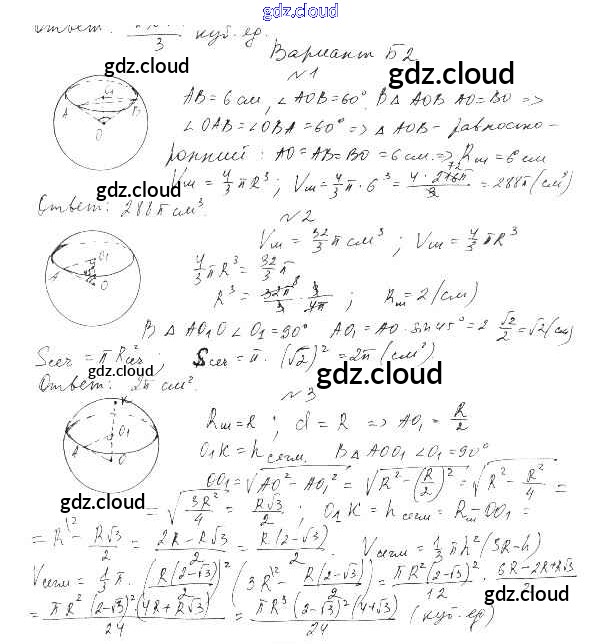 gdz.cloud
Ответ: 3 куб. ед.
Вариант Б2
gdz.cloud
№1
gdz.cloud
A B O
AB = 6 см, ∠AOB = 60°. В △ AOB AO = BO =>
∠OAB = ∠OBA = 60° => △ AOB - равносто-
ронний: AO = AB = BO = 6 см. => Rш = 6 см
gdz.cloud
Vш = 4/3 πR³; Vш = 4/3 π · 6³ = 4 · 216π/3 = 288π (см³)
Ответ: 288π см³.
№2
gdz.cloud
Vш = 32/3 π см³; Vш = 4/3 πR³
A O₁ O
4/3 πR³ = 32/3 π
R³ = 32π/3 · 3/4π; Rш = 2 (см)
gdz.cloud
В △ AO₁O ∠O₁ = 90° AO₁ = AO · sin 45° = 2 √2/2 = √2 (см)
Sсеч = πR²сеч; Sсеч = π · (√2)² = 2π (см²)
gdz.cloud
Ответ: 2π см².
№3
gdz.cloud
K A O₁ O
Rш = R; d = R => AO₁ = R/2
O₁K = hсегм. В △ AOO₁ ∠O₁ = 90°
gdz.cloud
OO₁ = √AO² - AO₁² = √R² - (R/2)² = √R² - R²/4 =
gdz.cloud
= √3R²/4 = R√3/2; O₁K = hсегм = Rш - OO₁ =
= R - R√3/2 = 2R - R√3/2 = R(2-√3)/2. Vсегм = 1/3 πh²(3R-h)
gdz.cloud
Vсегм = 1/3 π · (R(2-√3)/2)² (3R - R(2-√3)/2) = πR²(2-√3)²/12 · 6R - 2R + R√3/2
gdz.cloud
= πR²(2-√3)²(4R+R√3)/24 = πR³(2-√3)²(4+√3)/24 (куб. ед)
gdz.cloud